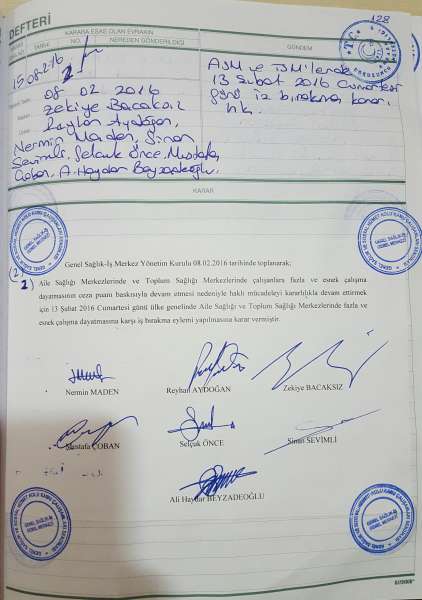 DEFTERİ
128
KARARA ESAS OLAN EVRAKIN
TARİHİ
NO.
NEREDEN GÖNDERİLDİĞİ
GÜNDEM
15.02.16
2
08 02 2016
Zekiye Bacaksız
Reyhan Aydoğan,
Nermin Maden, Sinan
Sevimli, Selçuk Önce, Mustafa
Çoban, A. Haydar Beyzadeoğlu.
ASM ve TSM'lerde
13 Şubat 2016 Cumartesi
günü iş bırakma kararı
hk.
KARAR
(2)
Genel Sağlık-İş Merkez Yönetim Kurulu 08.02.2016 tarihinde toplanarak;
2)
Aile Sağlığı Merkezlerinde ve Toplum Sağlığı Merkezlerinde çalışanlara fazla ve esnek çalışma
dayatmasının ceza puanı baskısıyla devam etmesi nedeniyle haklı mücadeleyi kararlılıkla devam ettirmek
için 13 Şubat 2016 Cumartesi günü ülke genelinde Aile Sağlığı ve Toplum Sağlığı Merkezlerinde fazla ve
esnek çalışma dayatmasına karşı iş bırakma eylemi yapılmasına karar vermiştir.
Nermin MADEN
Reyhan AYDOĞAN
Zekiye BACAKSIZ
Mustafa ÇOBAN
Selçuk ÖNCE
Sinan SEVİMLİ
Ali Haydar BEYZADEOĞLU
GENEL SAĞLIK-İŞ
GENEL MERKEZİ